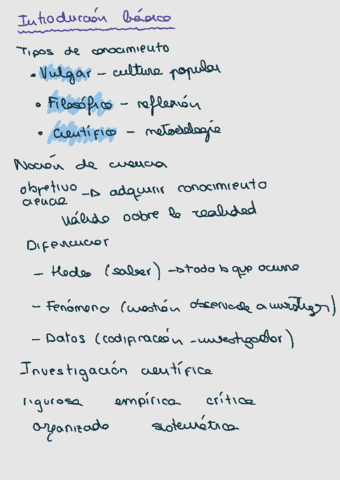 Introducción básica
Tipos de conocimiento
• Vulgar – cultura popular
• Filosófico – reflexión
• Científico – metodología
Noción de ciencia
objetivo ciencia → adquirir conocimiento
válido sobre la realidad
Diferenciar
– Hechos (saber) → todo lo que ocurre
– Fenómeno (cuestión observada a investigar)
– Datos (codificación – investigador)
Investigación científica
rigurosa empírica crítica
organizada sistemática